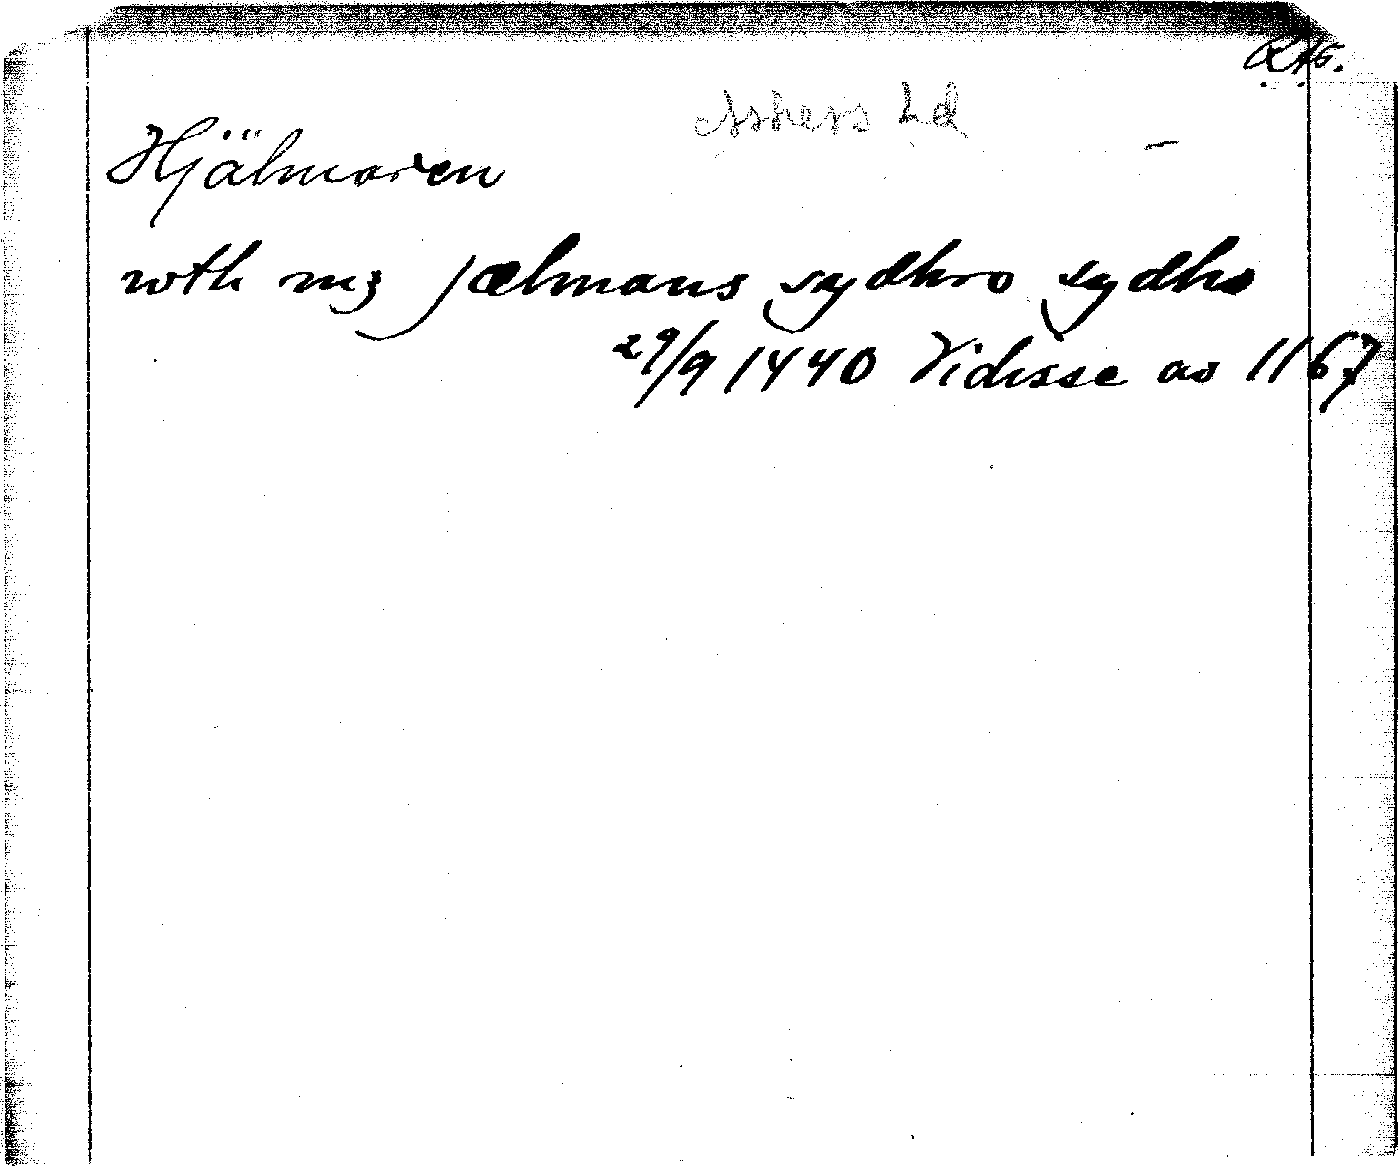 RAG.
Askers hd
Hjälmaren
wth mz jælmans sydhro sydho
29/9 1440 Vidisse av 1167